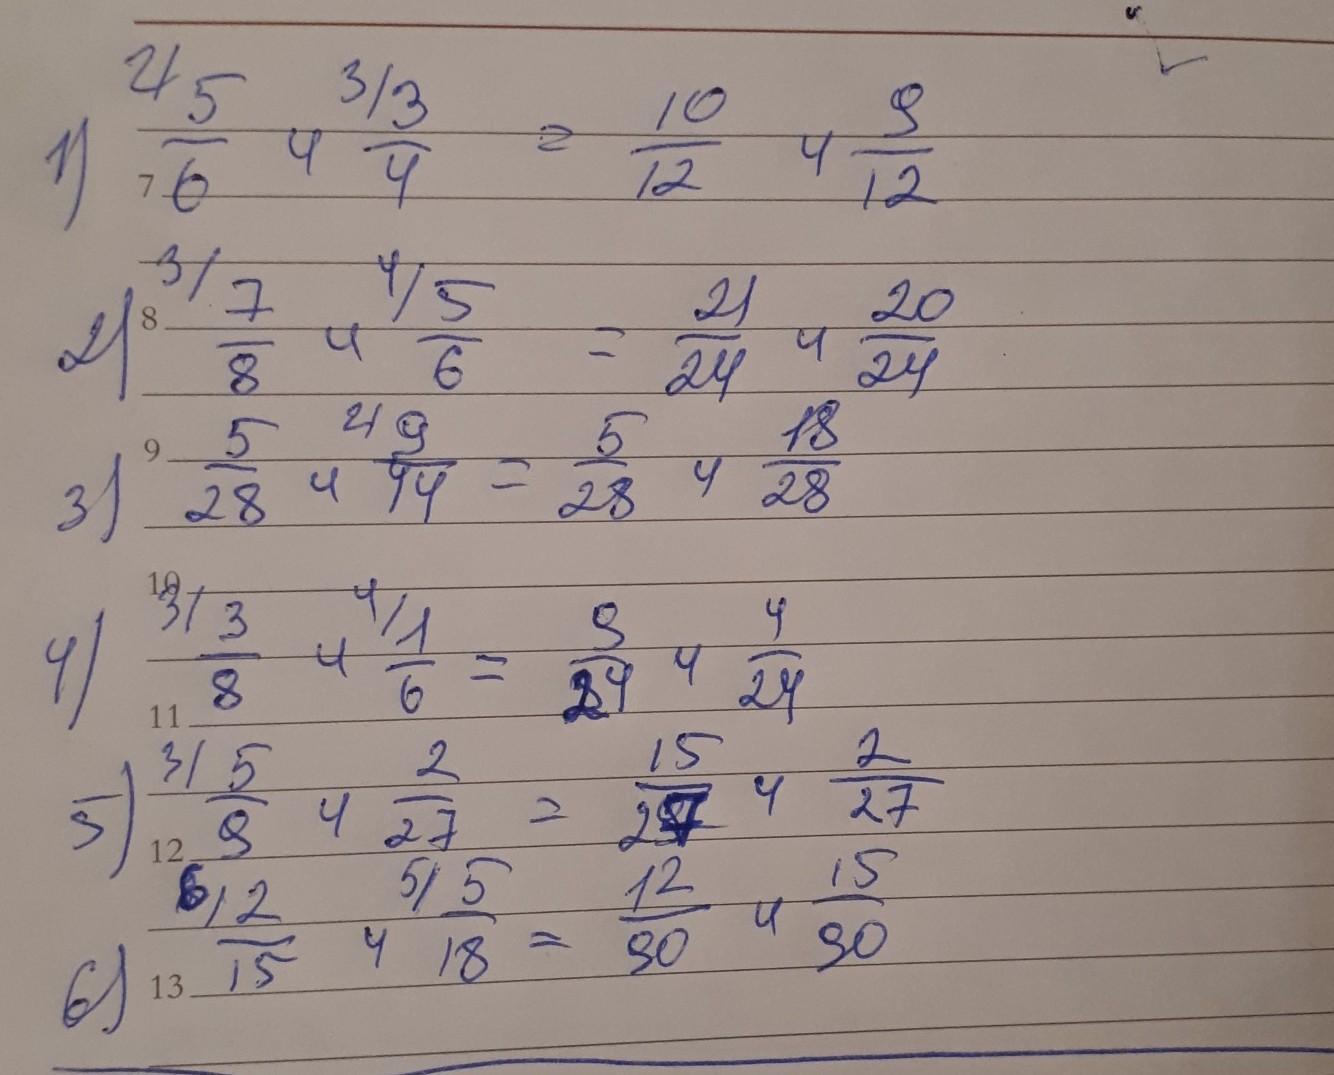 1) 2/ 5/6 и 3/ 3/4 = 10/12 и 9/12
7
2) 3/ 7/8 и 4/ 5/6 = 21/24 и 20/24
8
3) 5/28 и 2/ 9/14 = 5/28 и 18/28
9
10
4) 3/ 3/8 и 4/ 1/6 = 9/24 и 4/24
11
5) 3/ 5/9 и 2/27 = 15/27 и 2/27
12
6) 6/ 2/15 и 5/ 5/18 = 12/90 и 15/90
13